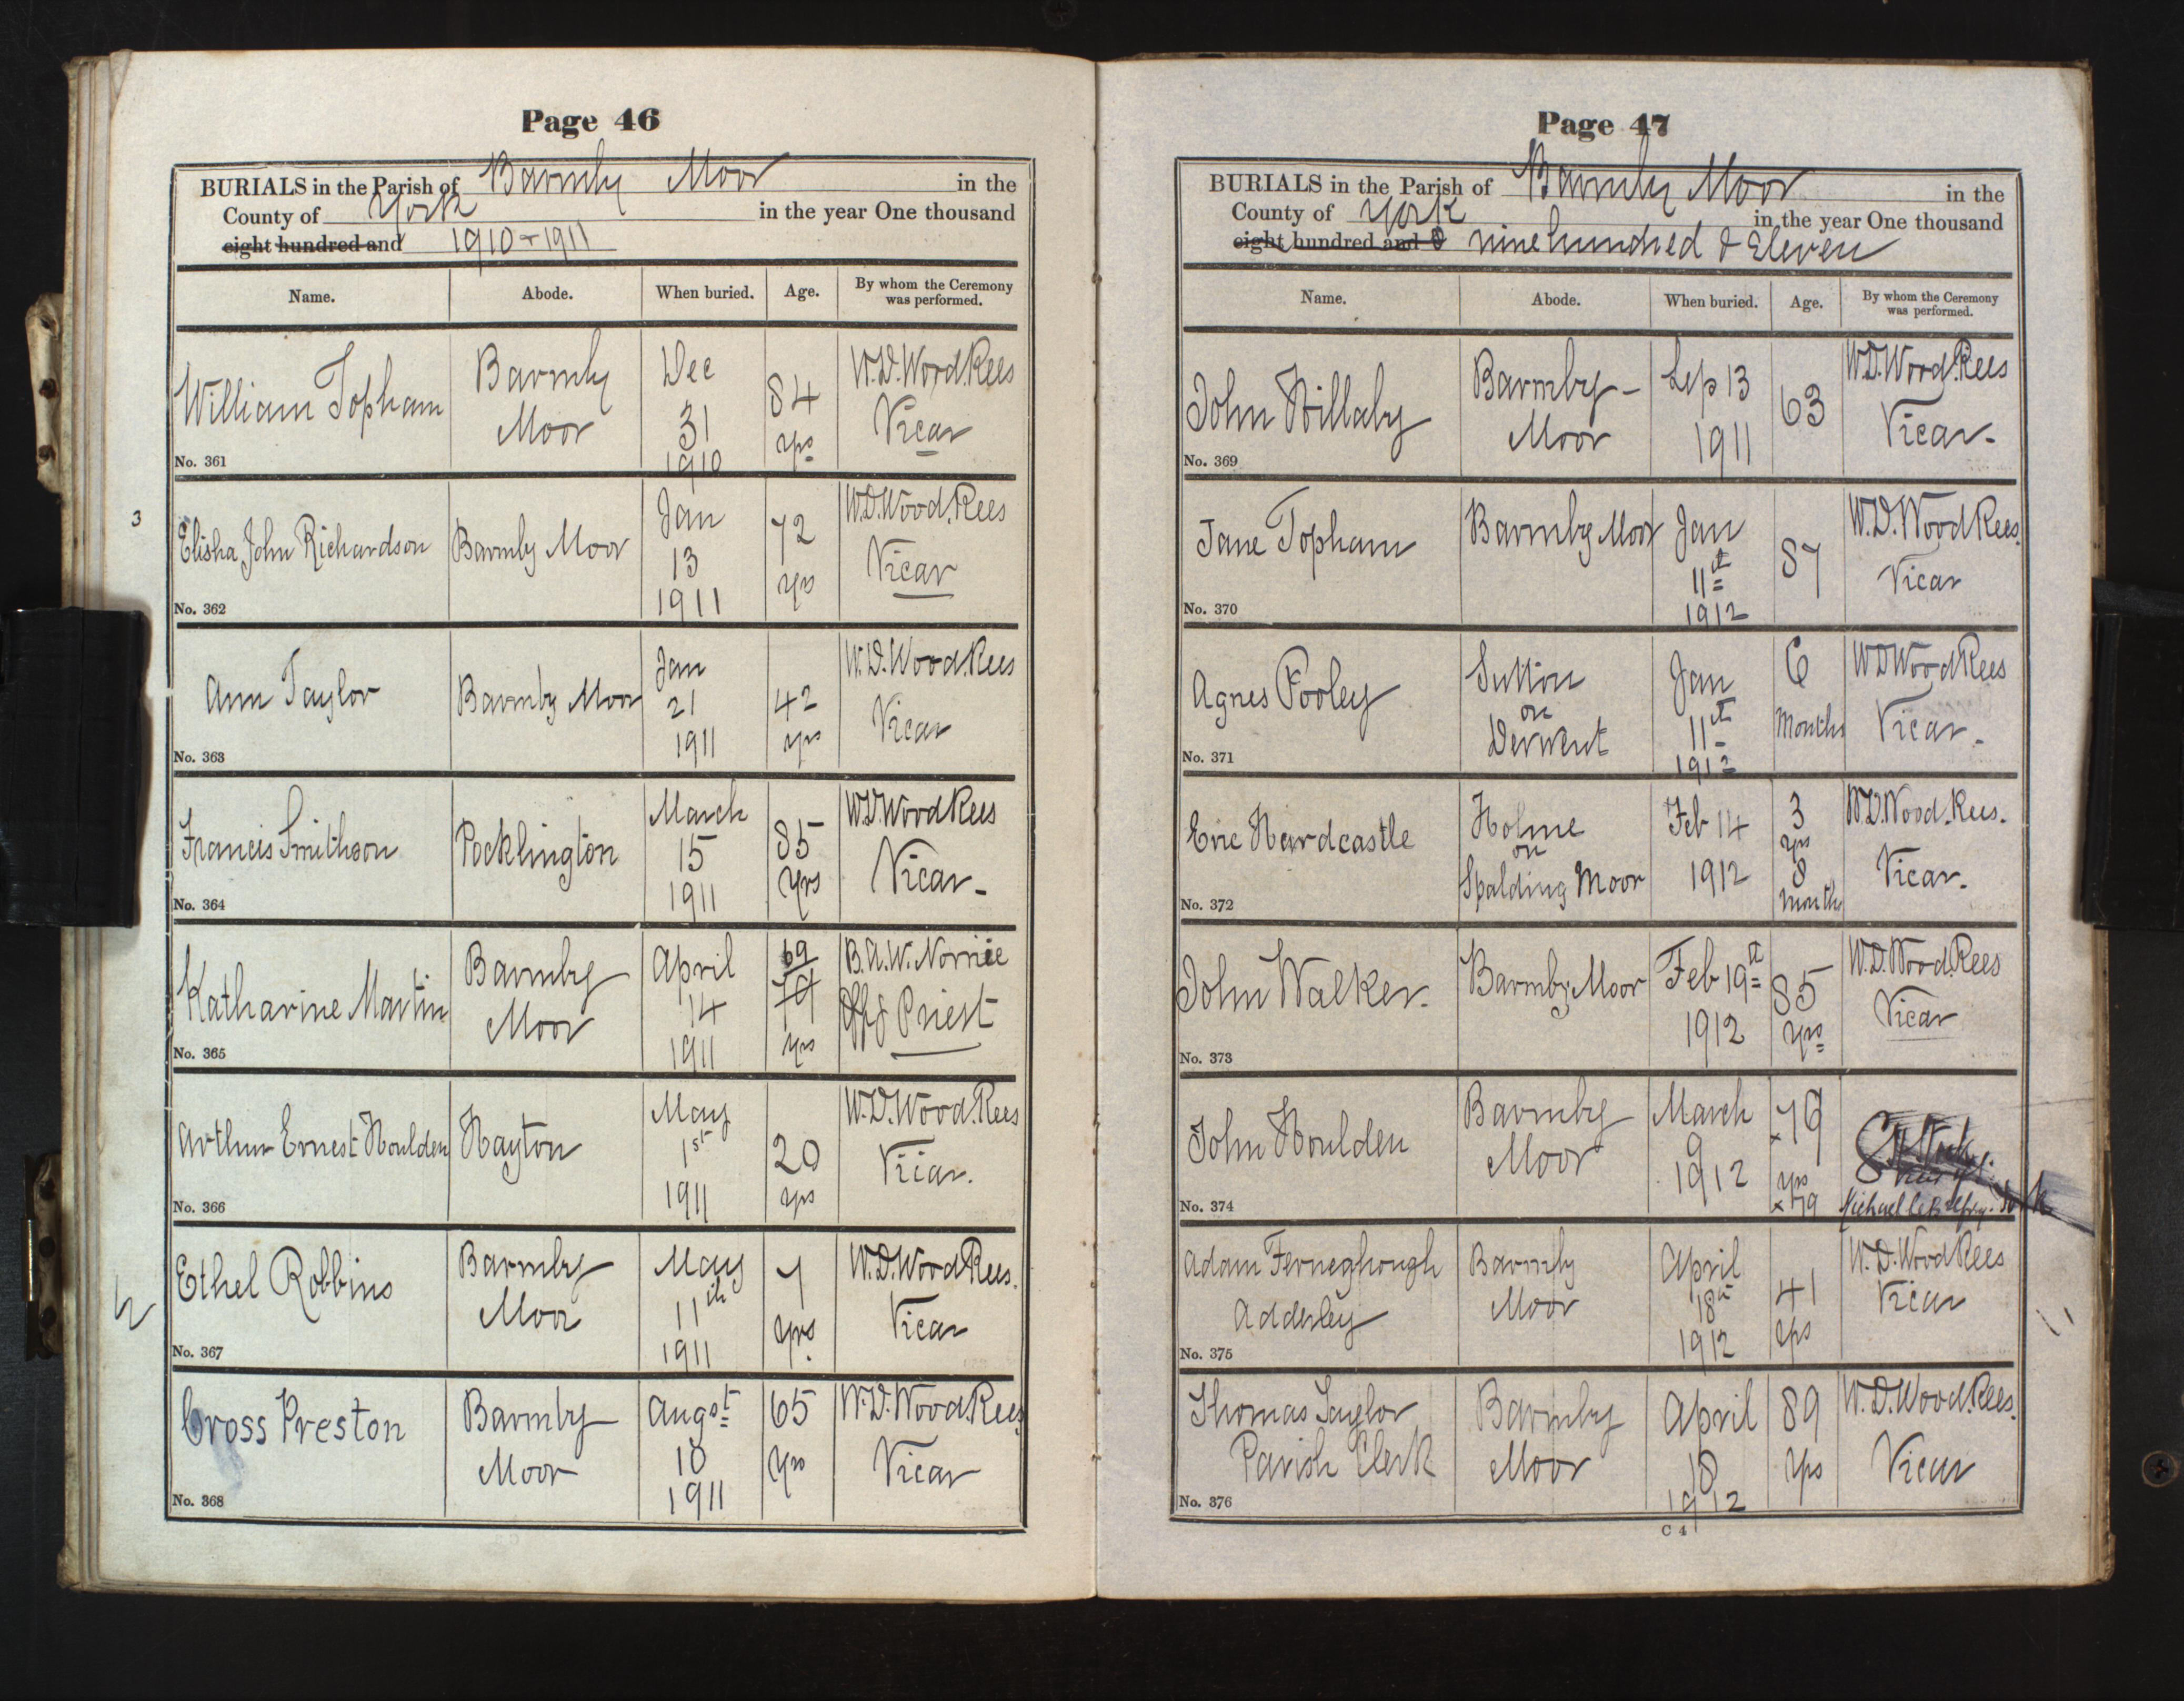 Page 46
BURIALS in the Parish of Barmby Moor in the
County of York in the year One thousand
eight hundred and 1910-1911
Name. Abode. When buried. Age. By whom the Ceremony was performed.
William Topham
Barmby
Moor
Dec
31
1910
84
yrs
W.D. Wood Rees
Vicar
No. 361
3
Elisha John Richardson
Barmby Moor
Jan
13
1911
72
yrs
W.D. Wood Rees
Vicar
No. 362
Ann Taylor
Barmby Moor
Jan
21
1911
42
yrs
W.D. Wood Rees
Vicar
No. 363
Francis Smithson
Pocklington
March
15
1911
85
yrs
W.D. Wood Rees
Vicar-
No. 364
Katharine Martin
Barmby
Moor
April
14
1911
69
79
yrs
B.A.W. Norrie
Offg Priest
No. 365
Arthur Ernest Houlden
Hayton
May
1st
1911
20
yrs
W.D. Wood Rees
Vicar.
No. 366
Ethel Robbins
Barmby
Moor
May
11th
1911
7
yrs.
W.D. Wood Rees.
Vicar
No. 367
Cross Preston
Barmby
Moor
Augst
18
1911
65
yrs
W.D. Wood Rees
Vicar
No. 368
Page 47
BURIALS in the Parish of Barmby Moor in the
County of York in the year One thousand
eight hundred and nine hundred & Eleven
Name. Abode. When buried. Age. By whom the Ceremony was performed.
John Hillaby
Barmby-
Moor
Sep 13
1911
63
W.D. Wood Rees
Vicar-
No. 369
Jane Topham
Barmby Moor
Jan
11th
1912
87
W.D. Wood Rees.
Vicar
No. 370
Agnes Pooley
Sutton
on
Derwent
Jan
11th
1912
6
Months
W D Wood Rees
Vicar-
No. 371
Eric Hardcastle
Holme
on
Spalding Moor
Feb 14
1912
3
yrs
8
months
W.D. Wood Rees.
Vicar.
No. 372
John Walker.
Barmby Moor
Feb 19th
1912
85
yrs
W.D. Wood Rees
Vicar
No. 373
John Houlden
Barmby
Moor
March
9
1912
x79
yrs
x 79
No. 374
Adam Ferneghough
Adderley
Barmby
Moor
April
18th
1912
41
yrs
W.D. Wood Rees
Vicar
No. 375
Thomas Taylor
Parish Clerk
Barmby
Moor
April
18
1912
89
yrs
W.D. Wood Rees.
Vicar
No. 376
C 4